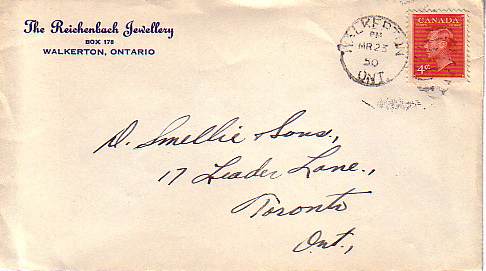 The Reichenbach Jewellery
BOX 178
WALKERTON, ONTARIO
WALKERTON
PM
MR 23
50
ONT.
CANADA
4¢
D. Smellie & Sons.,
17 Leader Lane.,
Toronto
Ont.,